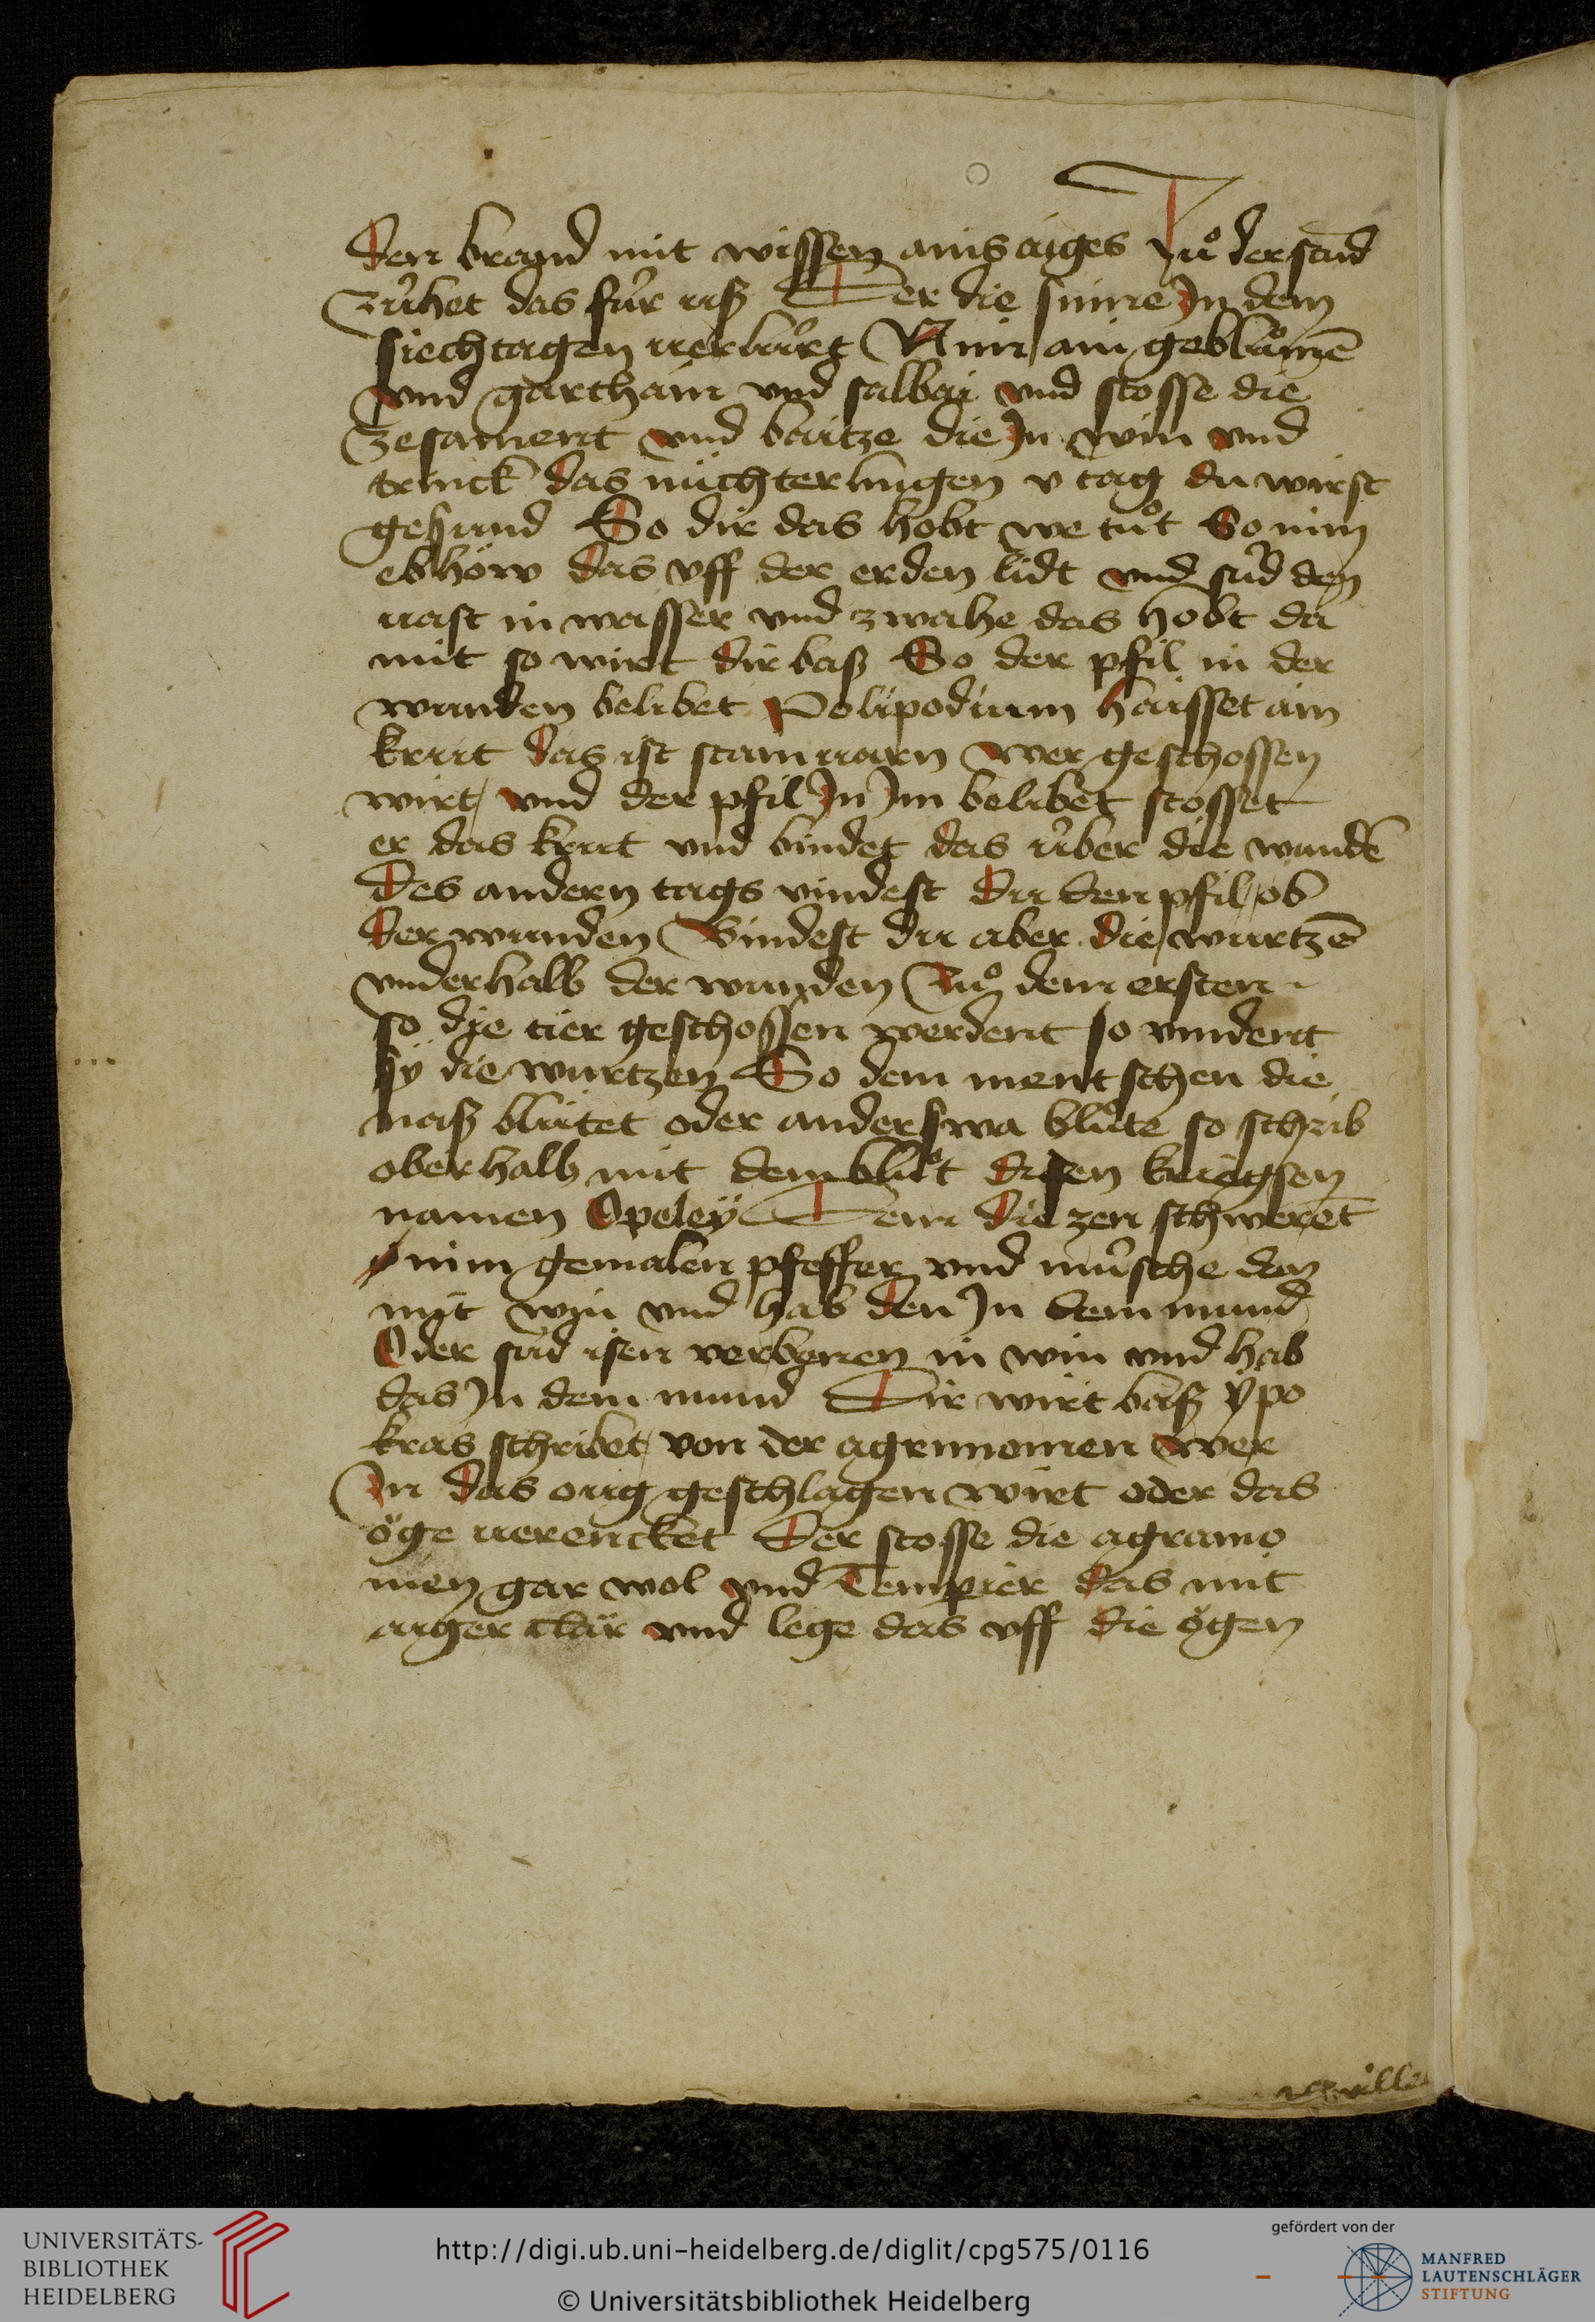 den brand mit wissen ains aiges Zuͦ der stund
Zúhet das fúr uß Der die sinne Jn dem
siechtagen verlúrt Nim ain geblůmē
vnd garthain vnd salbai vnd stosse die
zesament vnd baitze die Jn win vnd
trinck das nüchterlingen v tag du wirst
gesund So dir das hobt we tuͦt So nim
ebhöw das vff der erden lidt vnd súd den
vast in wasser vnd zwahe das hobt da
mit so wirt dir baß So der pfil in der
wunden belibet Polipodium haisset ain
krut das ist stainuarn wer geschossen
wirt vnd der pfil Jn Jm belibet stosset
er das krut vnd bindet das úber die wundē
Des andern tags vindest du den pfil ob
der wunden Bindest du aber die wurtzē
vnderhalb der wunden Zuͦ dem ersten
so dye tier geschossen werdent so vindent
sÿ die wurtzen So dem mentschen die
naß blütet oder anderswa blüte so schrib
oberhalb mit dem bluͦt disen kriegsen
namen Opoleÿ Dem die zen schwerēt
nim gemalen pfeffer vnd músche den
mit win vnd hab den Jn dem mund
Oder súd isen verbenen in win vnd hab
das Jn dem mund Dir wirt baß ÿpo
kras schribet von der agrimonien wer
Jn das oug geschlagen wirt oder das
öge verencket Der stosse die agramo
nien gar wol vnd Tempier das mit
aiger clär vnd lege das vff die ögen
UNIVERSITÄTS-
BIBLIOTHEK
HEIDELBERG
http://digi.ub.uni-heidelberg.de/diglit/cpg575/0116
© Universitätsbibliothek Heidelberg
gefördert von der
MANFRED
LAUTENSCHLÄGER
STIFTUNG